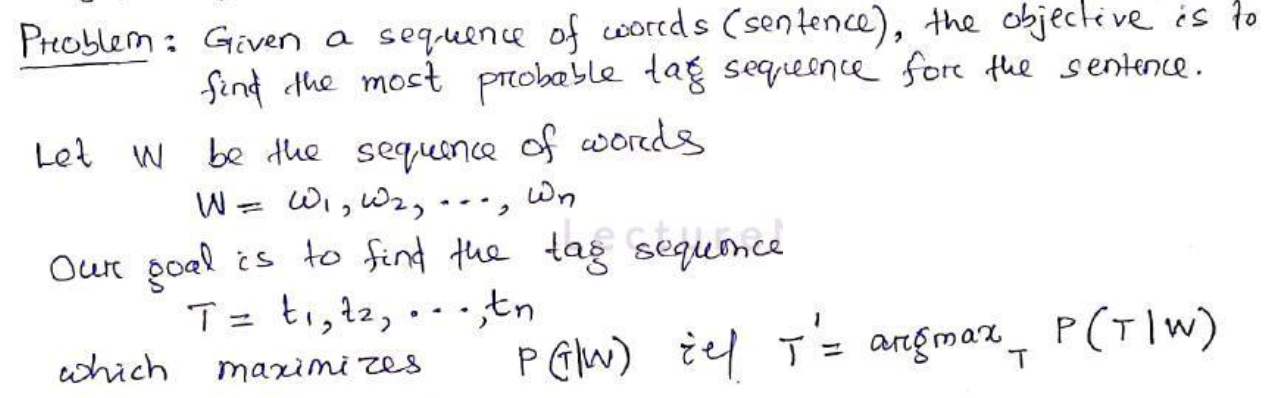 Problem: Given a sequence of words (sentence), the objective is to
find the most probable tag sequence for the sentence.
Let W be the sequence of words
W = w₁, w₂, ..., wn
Our goal is to find the tag sequence
T = t₁, t₂, ..., tn
which maximizes P(T|W) ie, T' = argmax_T P(T|W)